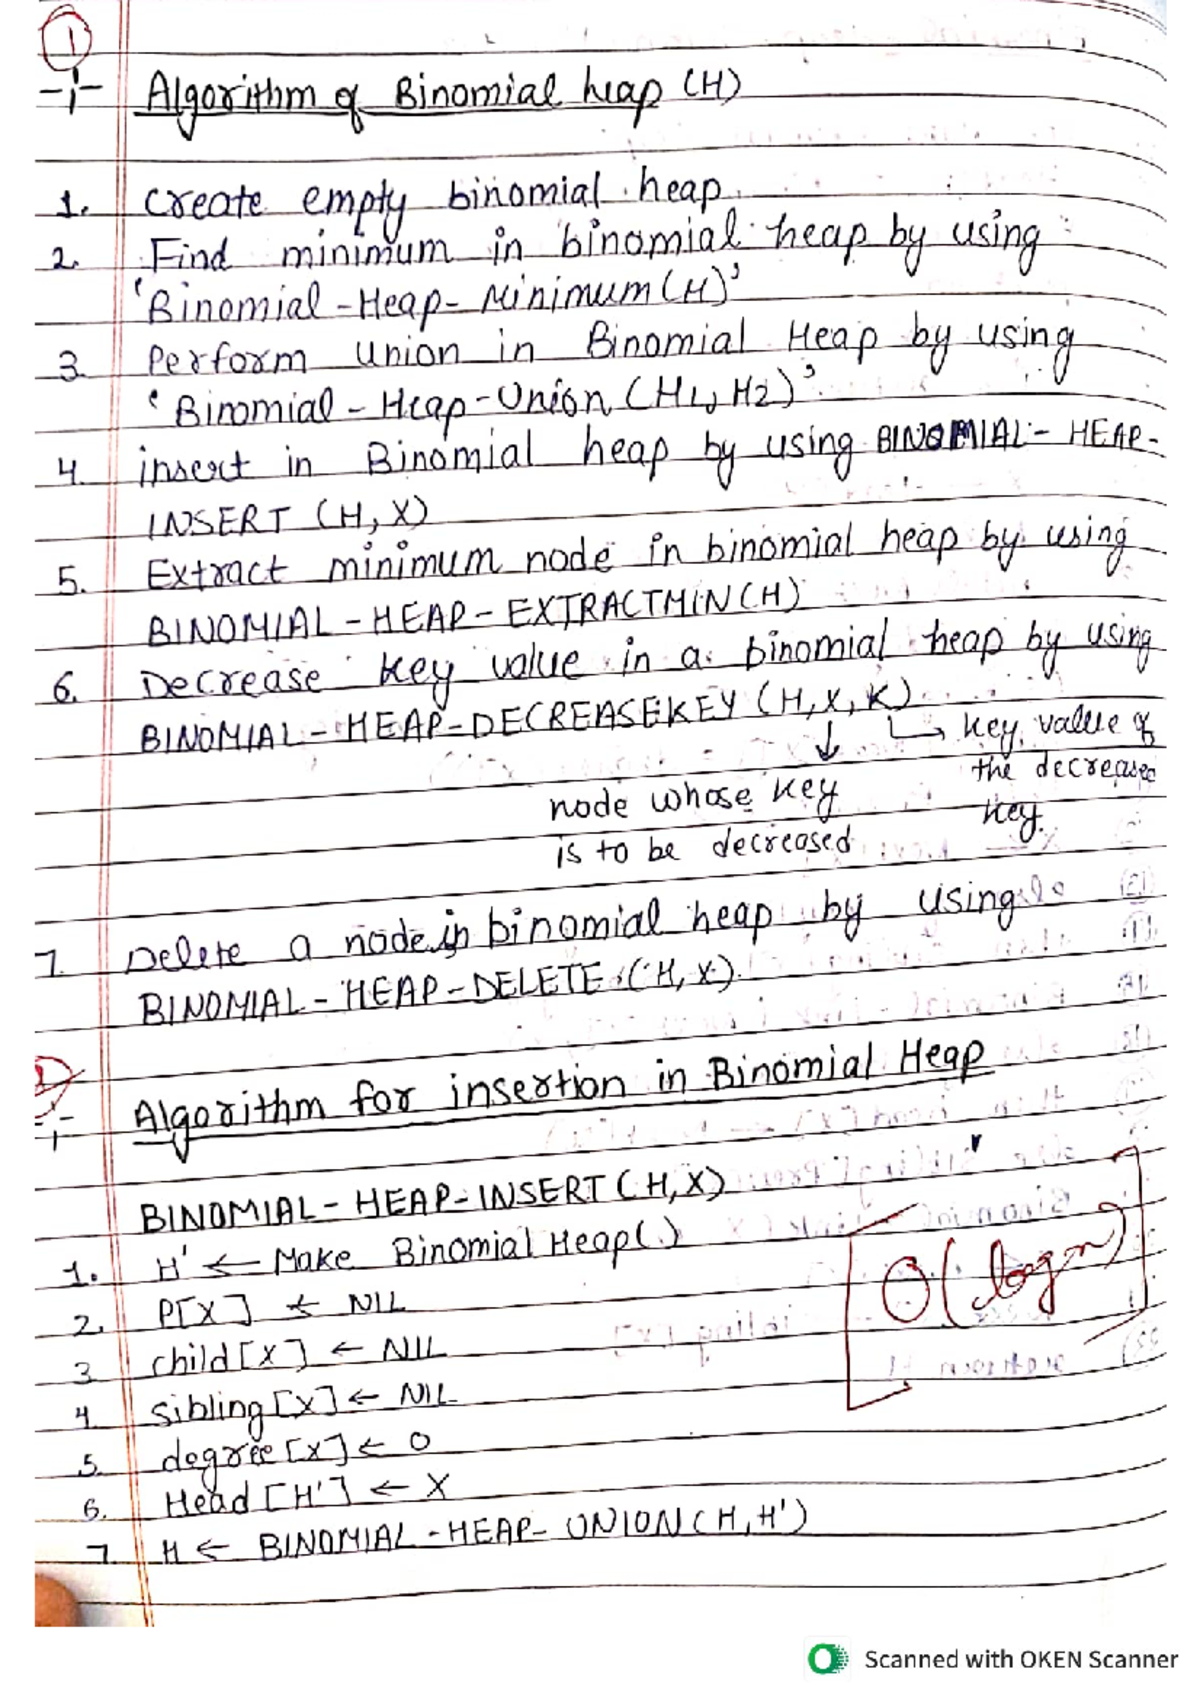 1
Algorithm of Binomial heap (H)
1. Create empty binomial heap.
2. Find minimum in binomial heap by using
'Binomial-Heap-Minimum(H)'
3. Perform union in Binomial Heap by using
'Binomial-Heap-Union (H1, H2)'
4. insert in Binomial heap by using BINOMIAL-HEAP-
INSERT (H, X)
5. Extract minimum node in binomial heap by using
BINOMIAL-HEAP-EXTRACTMIN(H)
6. Decrease key value in a binomial heap by using
BINOMIAL-HEAP-DECREASEKEY (H, X, K)
↓ ↳ key value of
the decrease
key.
node whose key
is to be decreased
7. Delete a node in binomial heap by using
BINOMIAL-HEAP-DELETE (H, X).
Algorithm for insertion in Binomial Heap
BINOMIAL-HEAP-INSERT (H, X)
1. H' ← Make Binomial Heap( )
2. P[X] ← NIL
3. child[X] ← NIL
4. sibling[X] ← NIL
5. degree[X] ← 0
6. Head[H'] ← X
7. H ← BINOMIAL-HEAP-UNION(H, H')
O(log n)
Scanned with OKEN Scanner